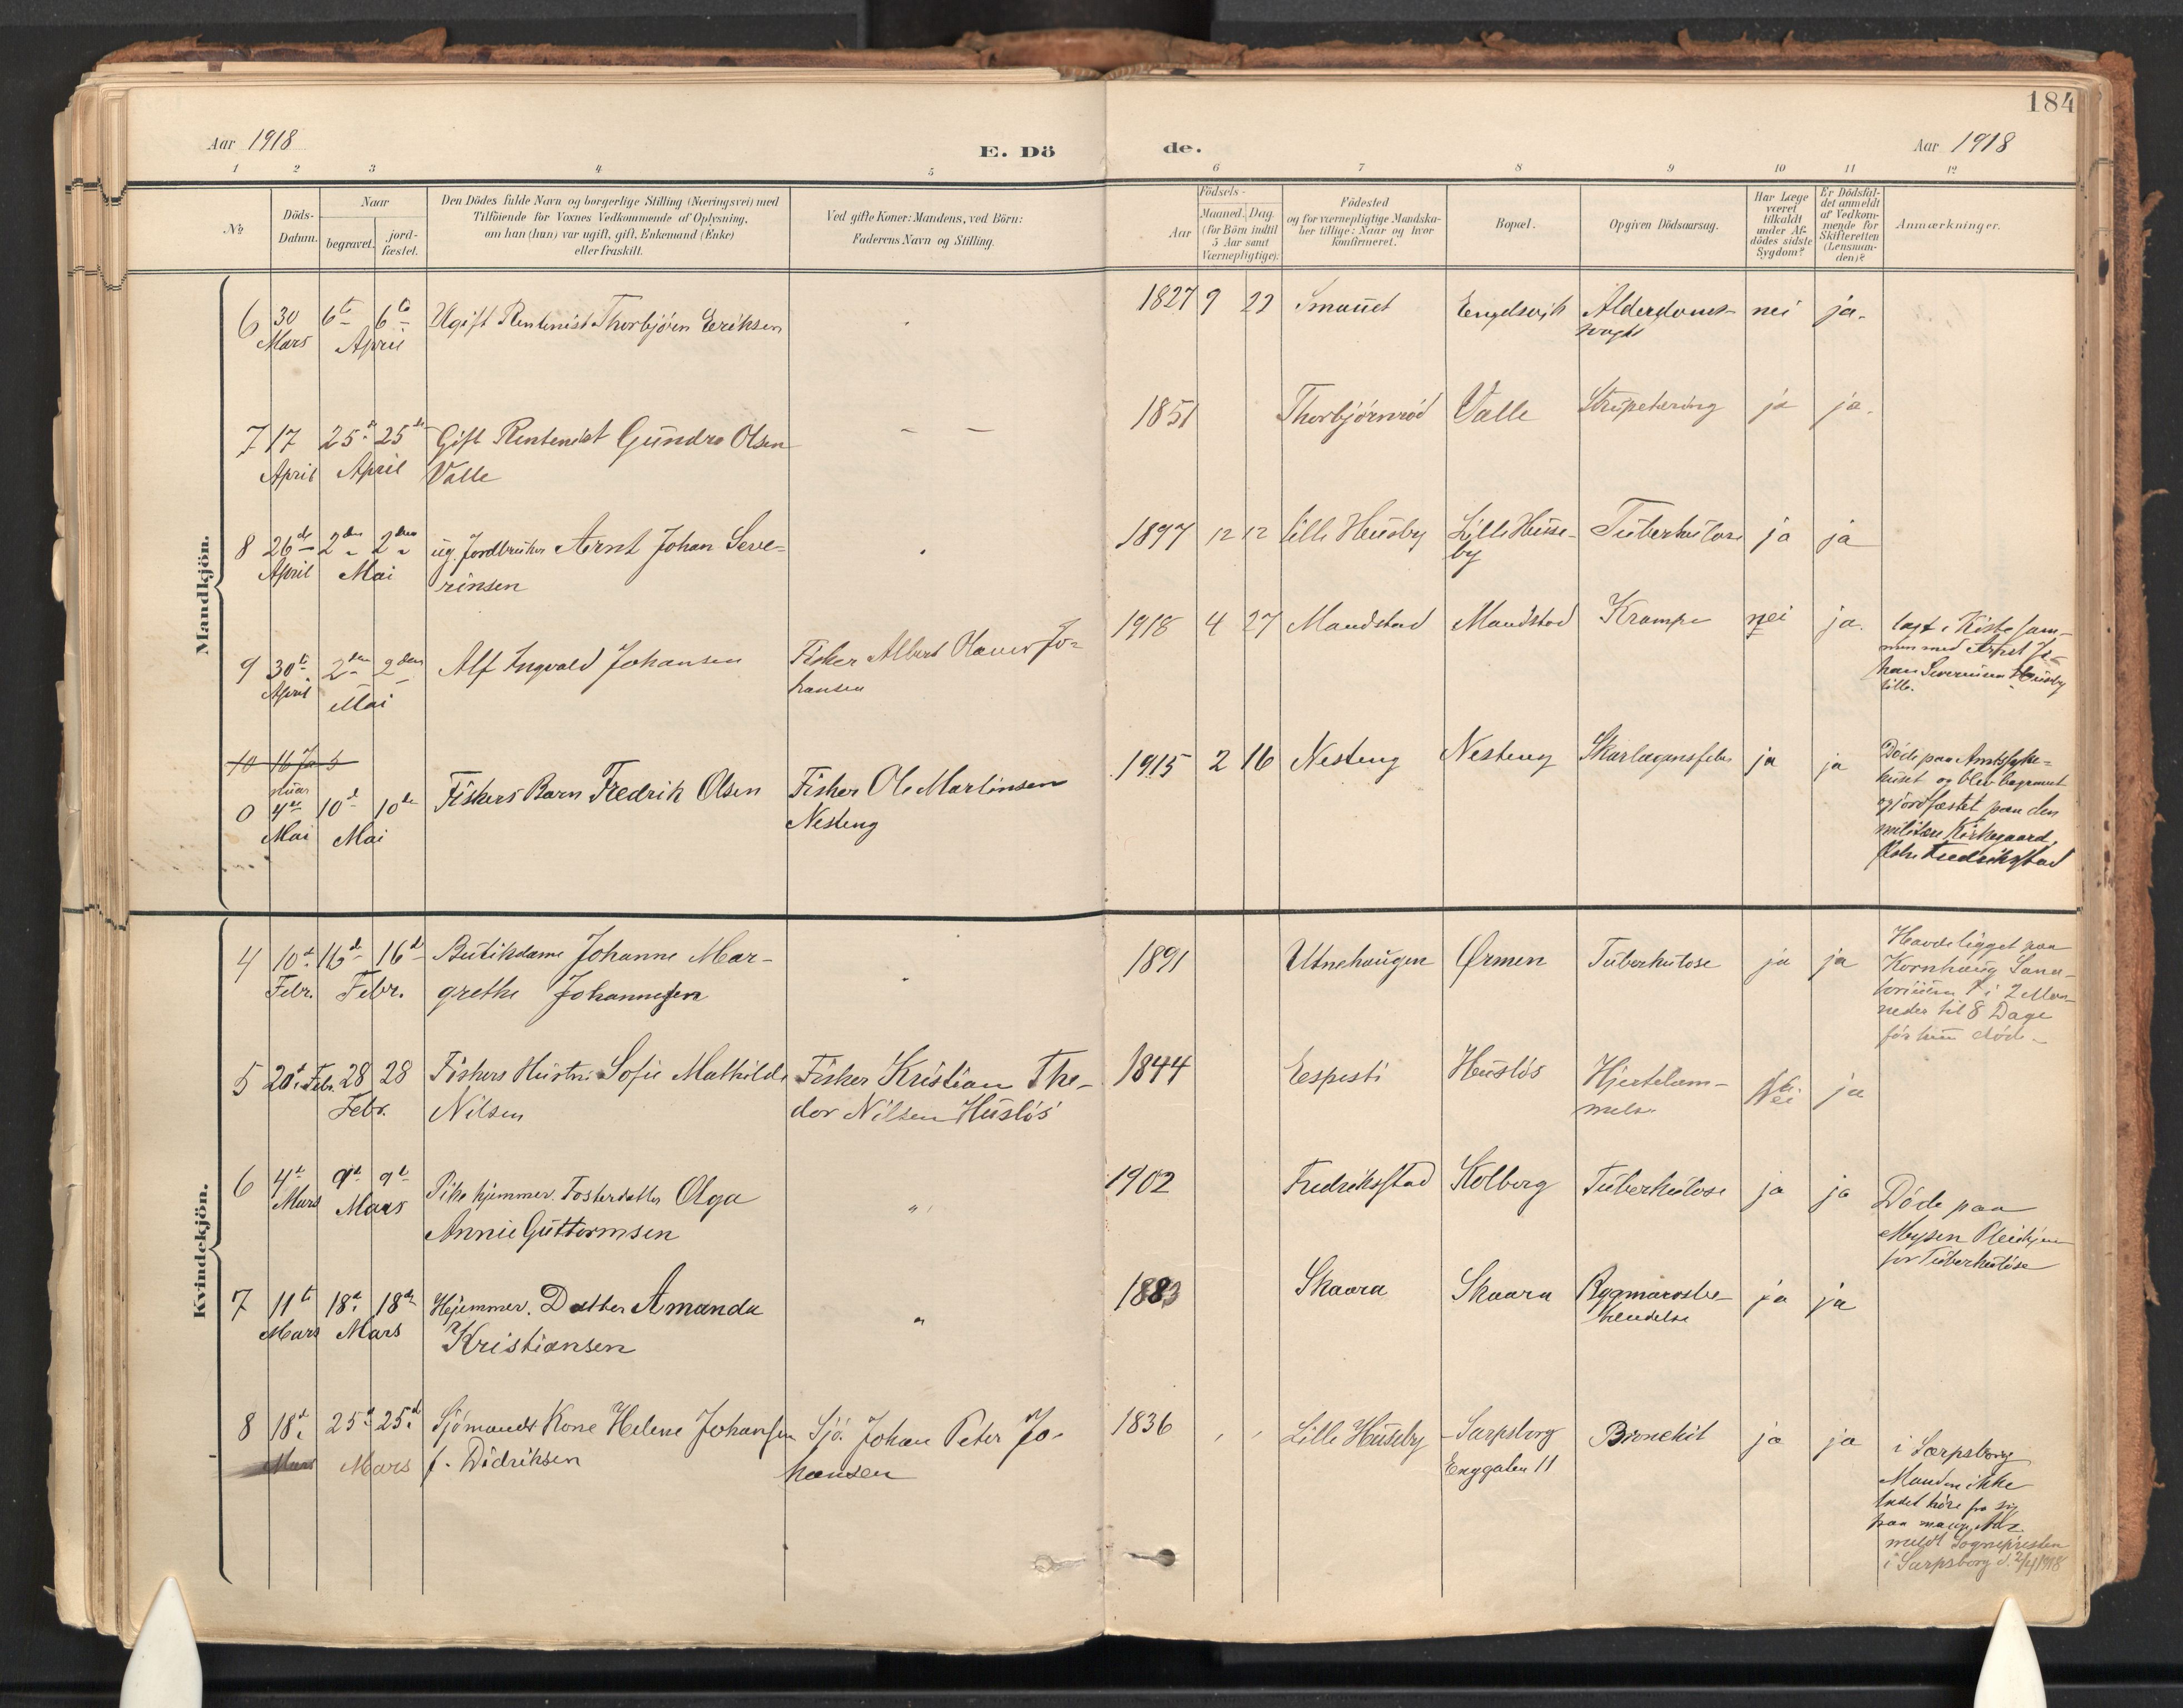 184
Aar 1918
E. Dö
de.
Aar 1918
1 2 3 4 5 6 7 8 9 10 11 12
No
Döds-
Datum.
Naar
begravet.
jord-
fæstet.
Den Dödes fulde Navn og borgerlige Stilling (Næringsvei) med
Tilföiende for Voxnes Vedkommende af Oplysning,
om han (hun) var ugift, gift, Enkemand (Enke)
eller fraskilt.
Ved gifte Koner: Mandens, ved Börn:
Faderens Navn og Stilling.
Födsels-
Aar
Maaned. Dag
(for Börn indtil
5 Aar samt
Værnepligtige).
Födested
og for værnepligtige Mandska-
ber tillige: Naar og hvor
konfirmeret.
Bopæl.
Opgiven Dödsaarsag.
Har Læge
været
tilkaldt
under Af-
dödes sidste
Sygdom?
Er Dödsfal-
det anmeldt
af Vedkom-
mende for
Skifteretten
(Lensman-
den)?
Anmærkninger.
Mandkjön.
6 30 6te 6te Ugift Rentenist Thorbjörn Eriksen 1827 9 22 Smauet Engelsvik Alderdoms- nei ja.
Mars April
7 17 25de 25de Gift Rentenist Gundro Olsen — — 1851 Thorbjörnröd Valle Strupetæring ja ja.
April April Valle
8 26de 2den 2den ug. Jordbruker Arnt Johan Seve- 1897 12 12 Lille Heusby Lille Huse- Tuberkulose ja ja
April Mai rinsen by
9 30te 2den 2den Alf Ingvald Johansen Fisker Albert Olaves Jo- 1918 4 27 Maudstad Maudstad Krampe nei ja. lagt i Kiste sam-
April Mai hansen men med Arnt Jo-
han Severinsen Heusby
lille.
10 16 Ja 5
nuar
0 4de 10de 10de Fiskers Barn Fredrik Olsen Fisker Ole Martinsen 1915 2 16 Nesteng Nesteng Skarlagensfeber ja ja Döde paa Amtssyke-
Mai Mai Nesteng huset og blev begravet
og jordfæstet paa den
militære Kirkegaard,
Fredrikstad
Kvindekjön.
4 10de 16de 16de Butikdame Johanne Mar- 1891 Utnehaugen Ørmen Tuberkulose ja ja Havde ligget paa
Febr. Febr. grethe Johannesen Kornhaug Sana-
torium i 2 Maa-
neder til 8 Dage
för hun döde.
5 20de Febr. 28 28 Fiskers Hustru Sofie Mathilde Fisker Kristian The- 1844 Espesti Husløs Hjertelam- Nei ja
Febr. Nilsen dor Nilsen Husløs melse
6 4de 9de 9de Pike hjemmev. Fosterdatter Olga " 1902 Fredriksstad Kolberg Tuberkulose ja ja Döde paa
Mars Mars Annie Guttormsen Mysen Pleiehjem
for Tuberkulose
7 11te 18de 18de Hjemmev. Datter Amanda " 1883 Skaara Skaara Rygmarvsbe- ja ja
Mars Mars Kristiansen tendelse
8 18de 25de 25de Sjömands Kone Helene Johansen Sjö. Johan Peter Jo- 1836 Lille Huseby Sarpsborg Bronchit ja ja i Sarpsborg
Mars Mars f. Didriksen hansen Enggaten 11 Manden ikke
ladet höre fra sig
paa mange Aar
meldt Sognepresten
i Sarpsborg d. 2/4 1918